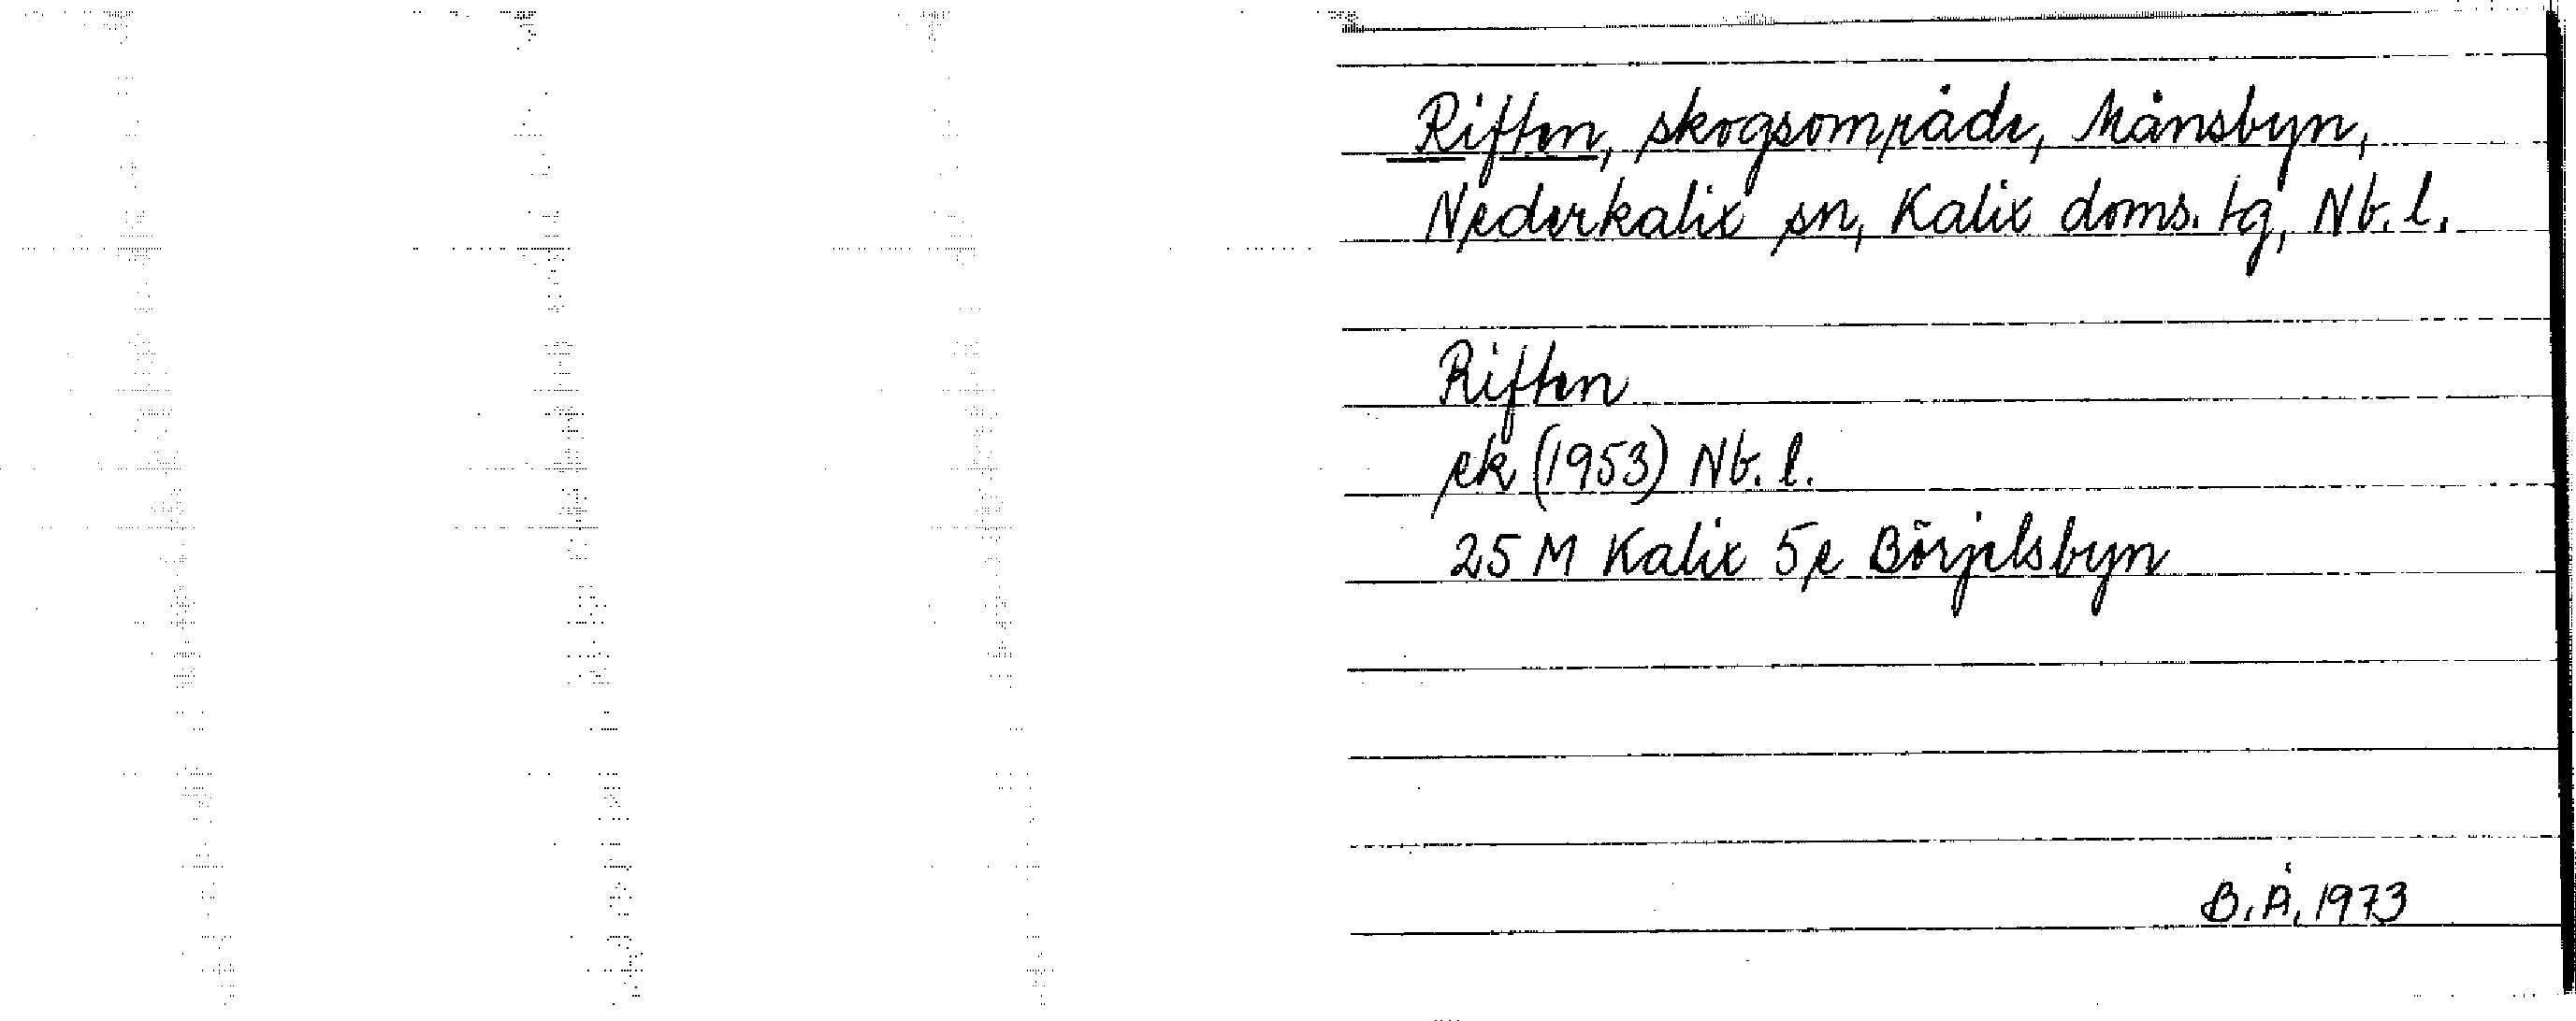 Riften, skogsområde, Månsbyn,
Nederkalix sn, Kalix doms. tg, Nb. l.
Riften
ek (1953) Nb. l.
25 M Kalix 5e Börjelsbyn
B.Å. 1973